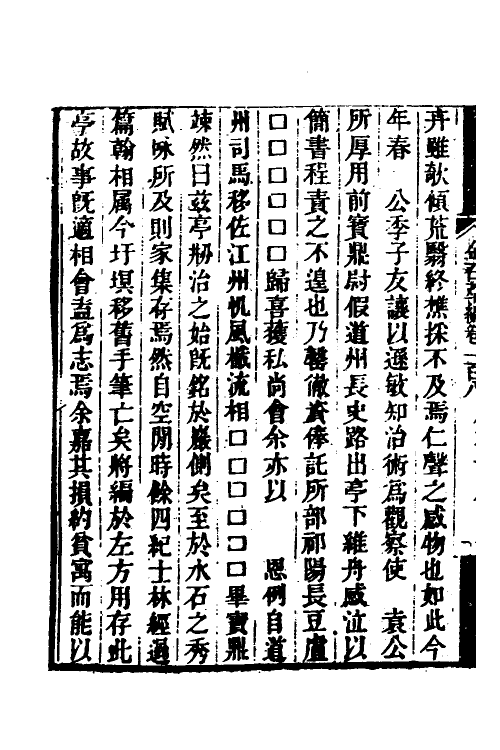 卉雖欹傾荒翳終樵採不及焉仁聲之感物也如此今
年春　公季子友讓以遜敏知治術爲觀察使　袁公
所厚用前寶鼎尉假道州長史路出亭下維舟感泣以
簡書程責之不遑也乃罄徹資俸託所部祁陽長豆盧
□□□□□歸喜獲私尚會余亦以　恩例自道
州司馬移佐江州帆風檝流相□□□□□□畢寶鼎
竦然曰兹亭刱治之始旣銘於巖側矣至於水石之秀
賦詠所及則家集存焉然自空閒時餘四紀士林經過
篇翰相属今圬塓移舊手筆亡矣將編於左方用存此
亭故事旣適相會盍爲志焉余嘉其損約貧寓而能以
金石萃編卷一百八